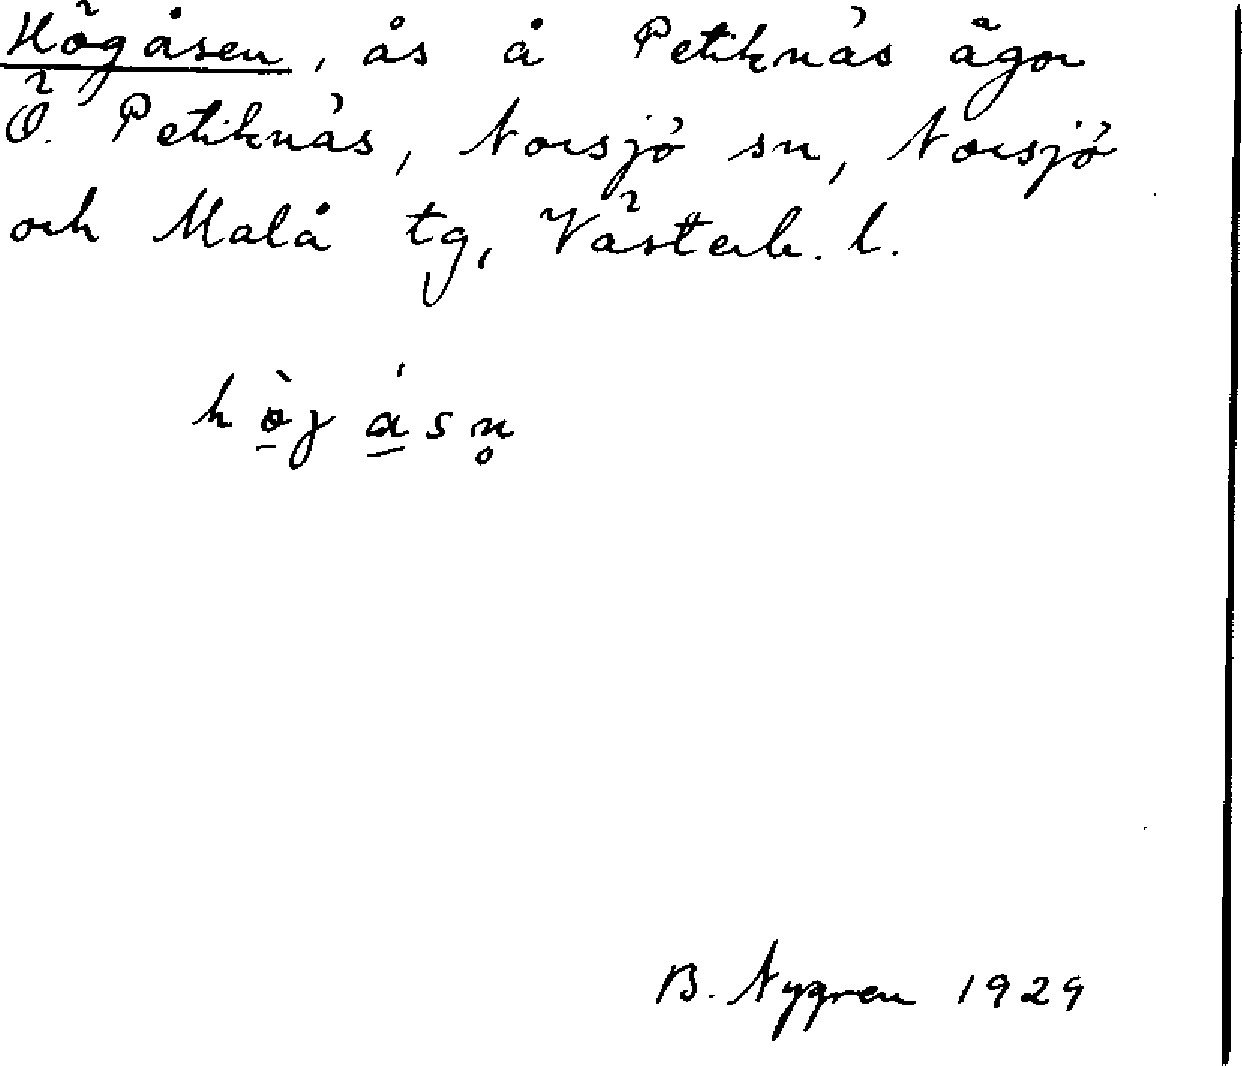 Högåsen, ås å Petiknäs ägor
Ö. Petiknäs, Norsjö sn, Norsjö
och Malå tg, Västerb. l.
hö̀gásn̥
B. Nygren 1929